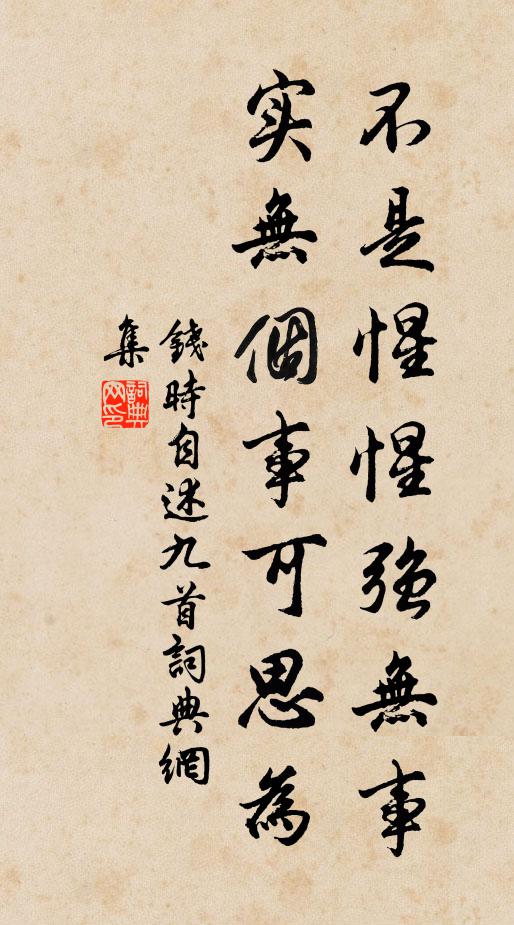 不是惺惺強無事
实無個事可思為
錢時自述九首詞典網
集
詞典
网印